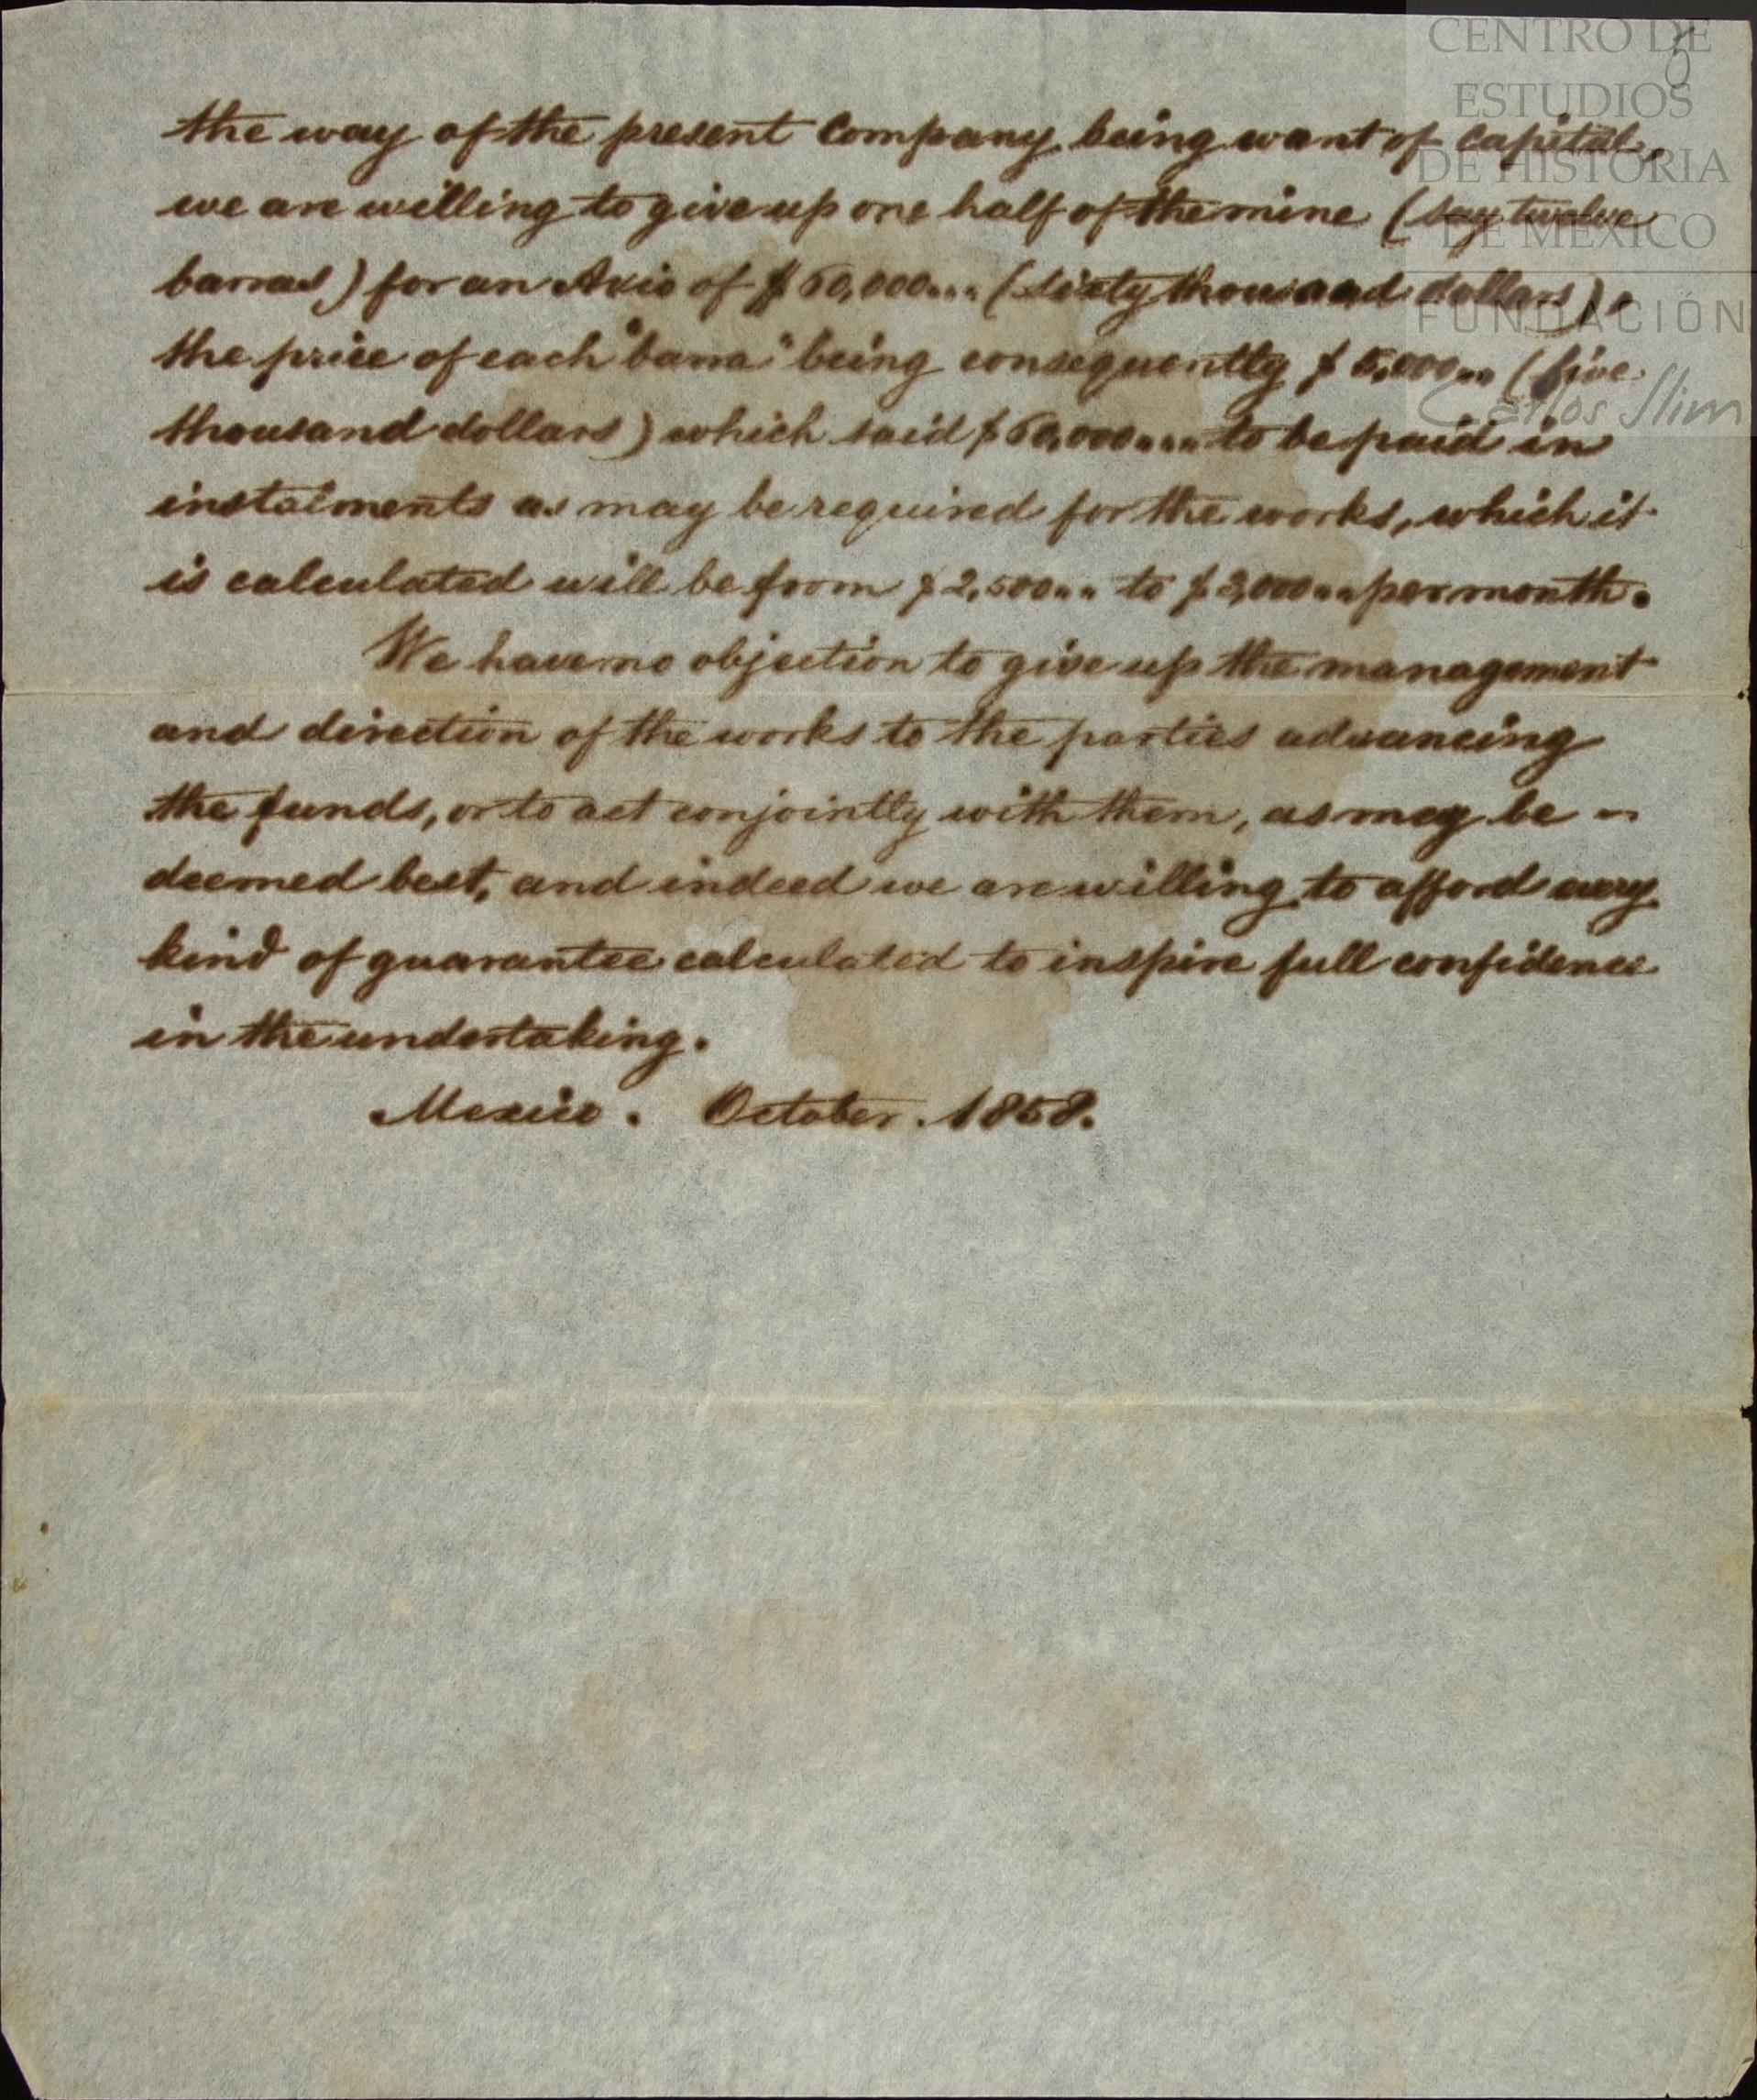 CENTRO DE
ESTUDIOS
DE HISTORIA
DE MEXICO
FUNDACIÓN
Carlos Slim
the way of the present Company being want of capital,
we are willing to give up one half of the mine (say twelve
barras) for an Avio of $60,000... (sixty thousand dollars),
the price of each "barra" being consequently $5,000.. (five
thousand dollars) which said $60,000... to be paid in
instalments as may be required for the works, which it
is calculated will be from $2,500.. to $3,000.. per month.
We have no objection to give up the management
and direction of the works to the parties advancing
the funds, or to act conjointly with them, as may be -
deemed best, and indeed we are willing to afford every
kind of guarantee calculated to inspire full confidence
in the undertaking.
Mexico. October. 1858.